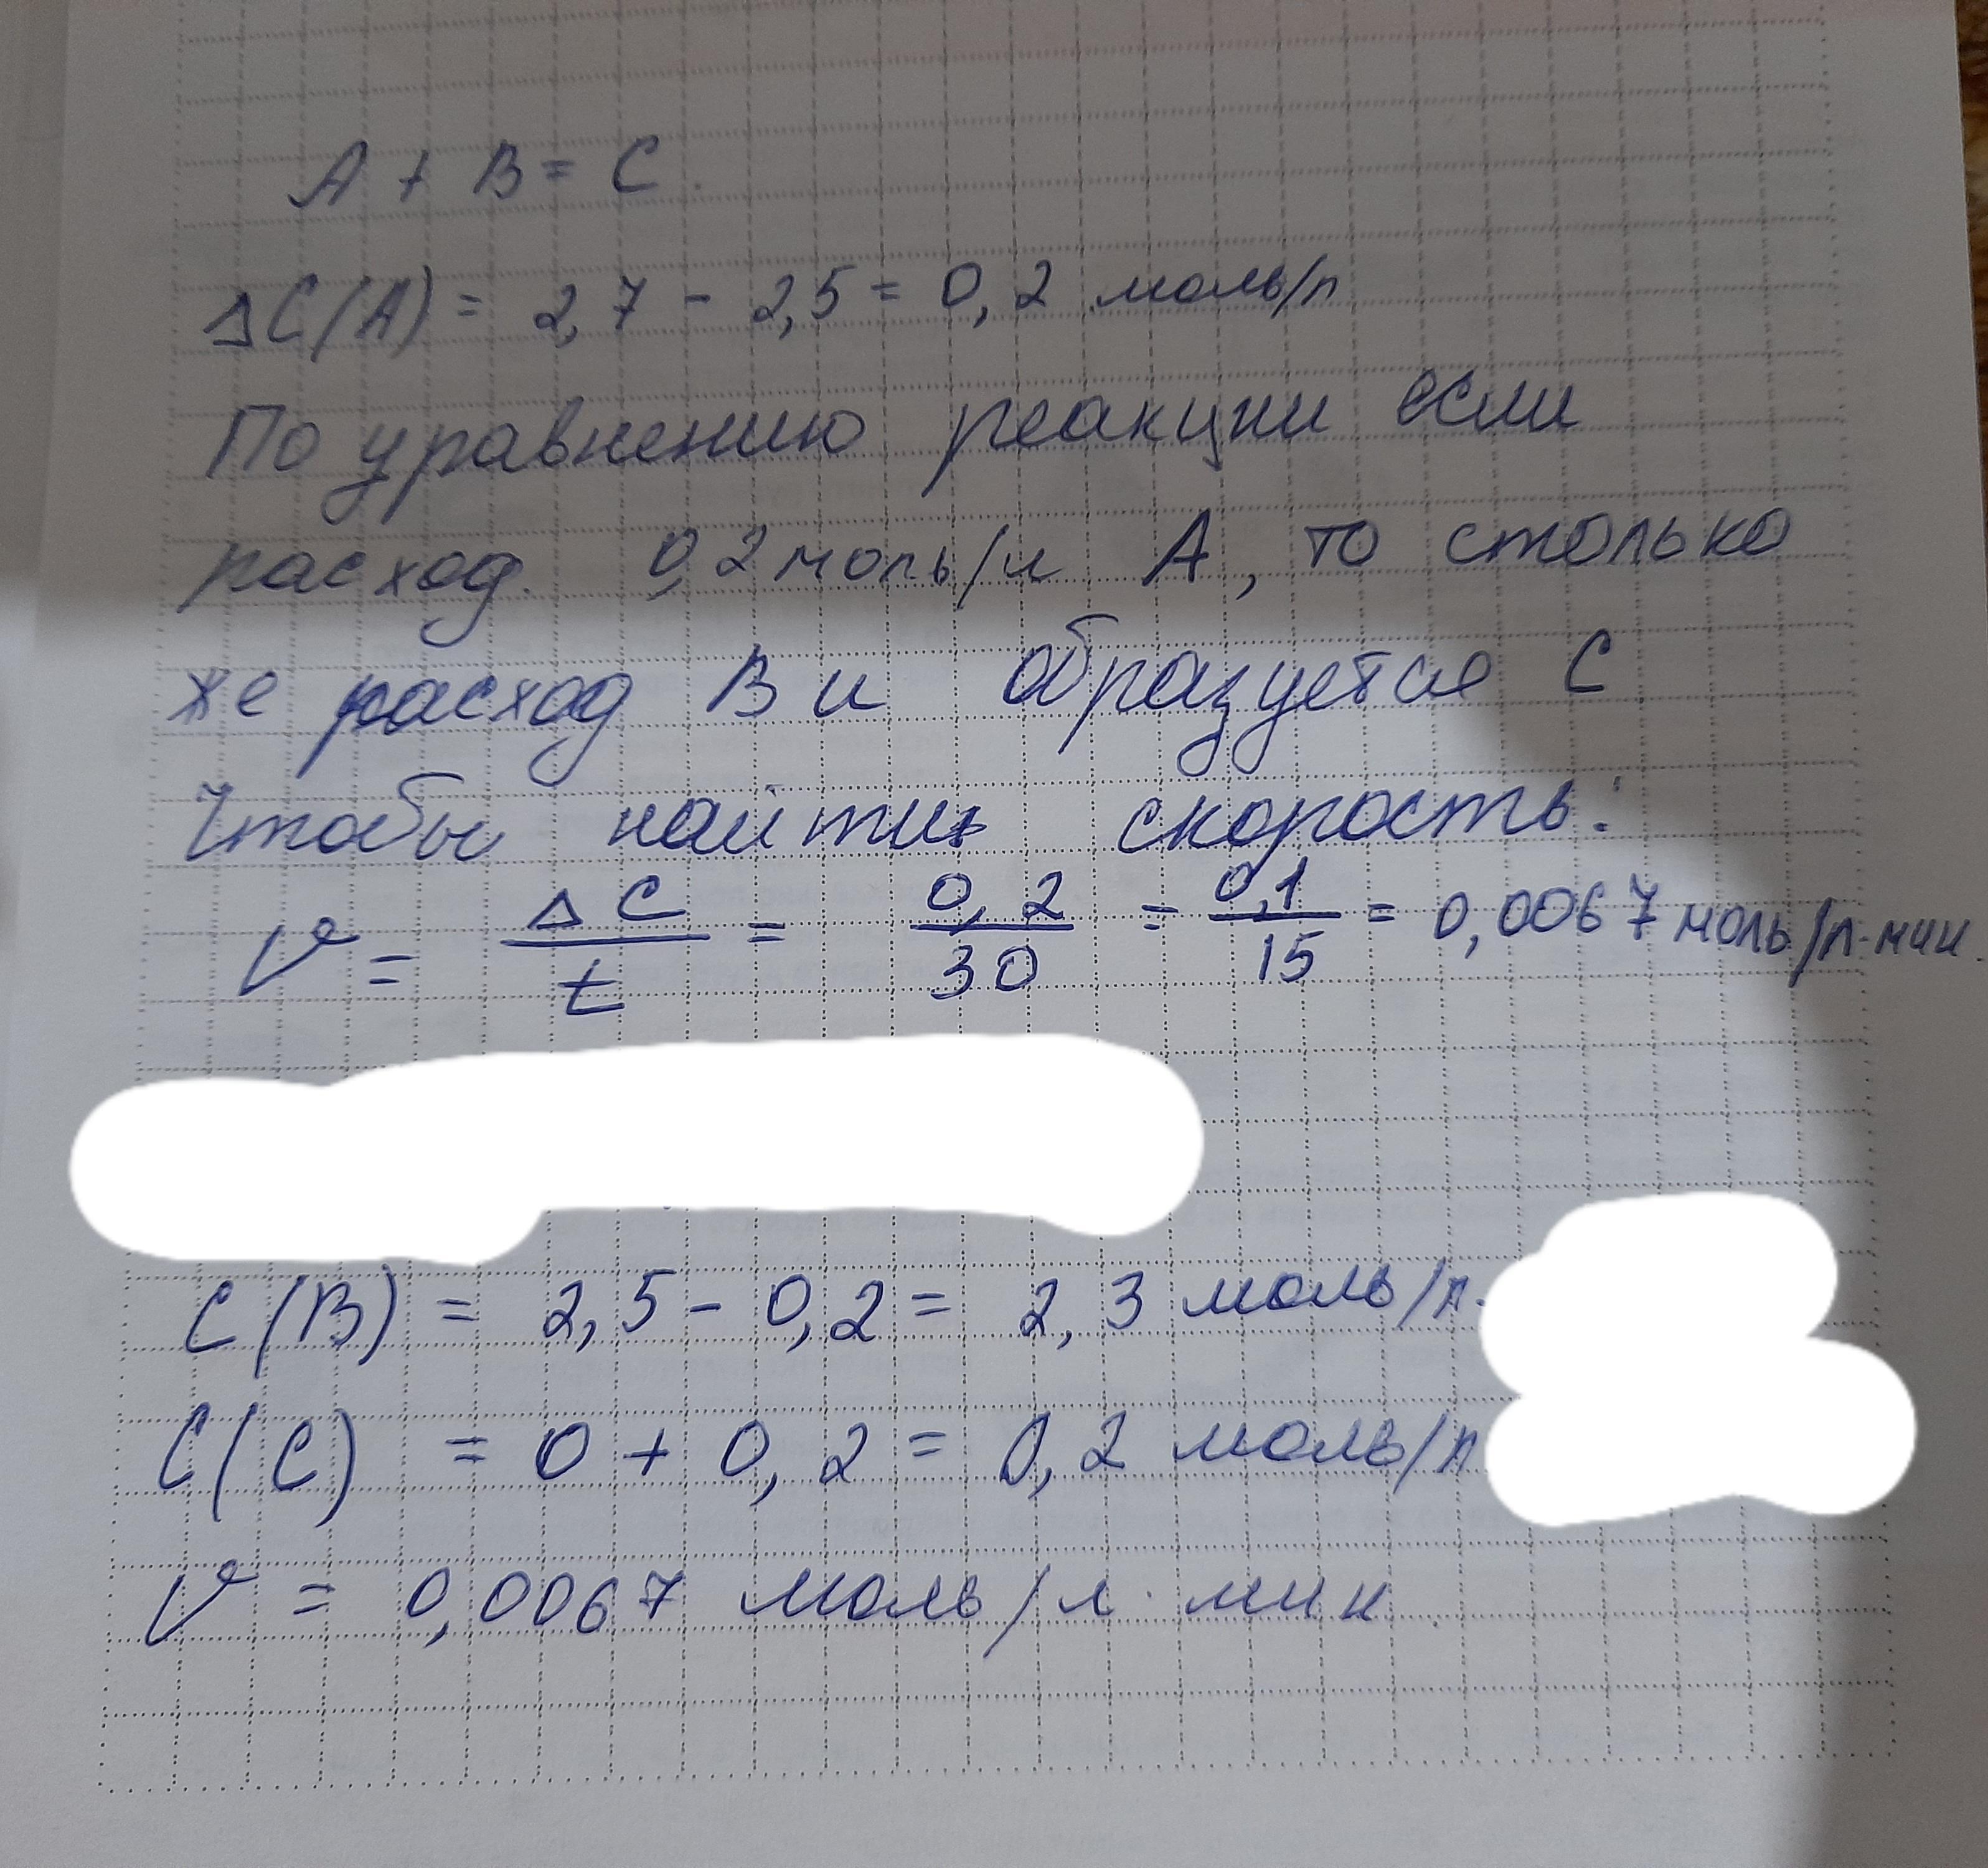 A + B = C.
ΔC(A) = 2,7 - 2,5 = 0,2 моль/л
По уравнению реакции если
расход. 0,2 моль/л A, то столько
же расход B и образуется C
Чтобы найти скорость:
V = ΔC/t = 0,2/30 = 0,1/15 = 0,0067 моль/л·мин.
C(B) = 2,5 - 0,2 = 2,3 моль/л.
C(C) = 0 + 0,2 = 0,2 моль/л
V = 0,0067 моль/л·мин